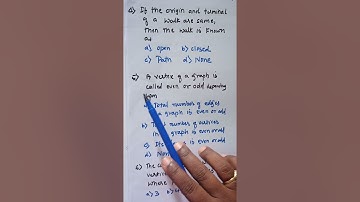 4) If the origin and tuminal
of a walk are same,
Then the walk is known
as
a) open b) closed
c) Path d) None
5) A vertex of a graph is
called even or odd depending
upon
Total number of edges
a graph is even or odd
b) Total number of vertices
in graph is even or odd
is even or odd
d)
6) The
vertices
where
a) 3 b)